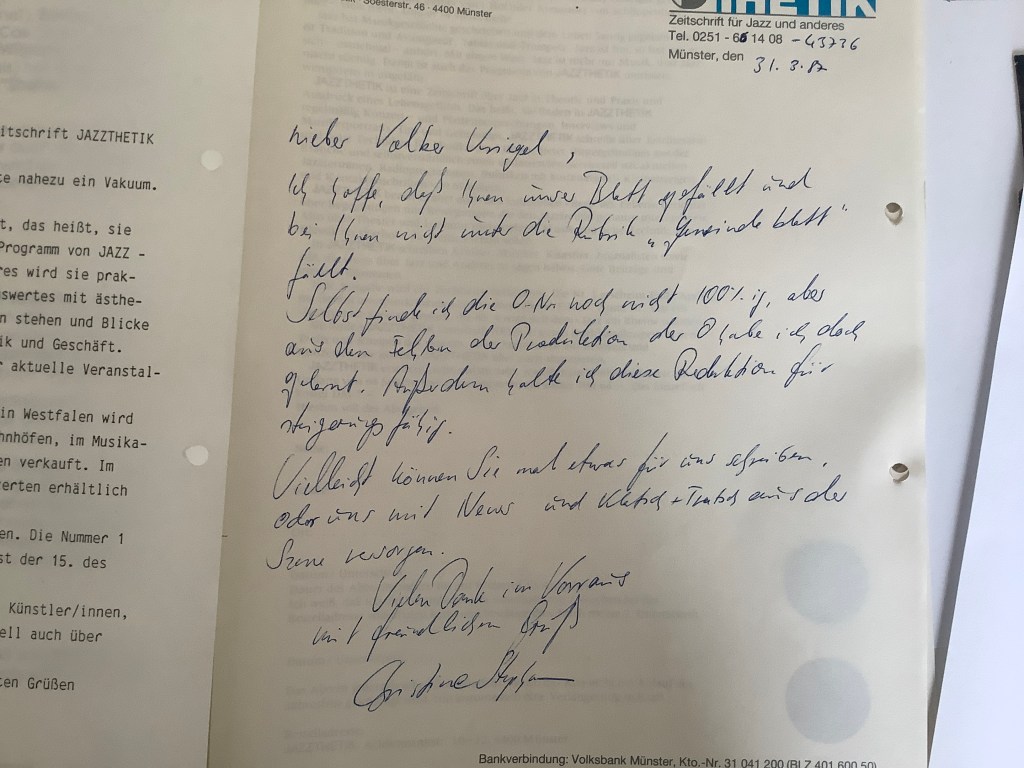 Soesterstr. 46 · 4400 Münster
THETIK
Zeitschrift für Jazz und anderes
Tel. 0251 - 6614 08 - 43736
Münster, den 31.3.87
Lieber Volker Kriegel,
Ich hoffe, daß Ihnen unser Blatt gefällt und
bei Ihnen nicht unter die Rubrik „Gemeindeblatt“
fällt.
Selbst finde ich die 0-Nr. noch nicht 100%ig, aber
aus den Fehlern der Produktion der 0 habe ich doch
gelernt. Außerdem halte ich diese Redaktion für
steigerungsfähig.
Vielleicht können Sie mal etwas für uns schreiben,
oder uns mit News und Klatsch + Tratsch aus der
Szene versorgen.
Vielen Dank im Vorraus
mit freundlichem Gruß
Christine Stephan
Bankverbindung: Volksbank Münster, Kto.-Nr. 31 041 200 (BLZ 401 600 50)
itschrift JAZZTHETIK
te nahezu ein Vakuum.
t, das heißt, sie
Programm von JAZZ -
res wird sie prak-
swertes mit ästhe-
n stehen und Blicke
ik und Geschäft.
r aktuelle Veranstal-
in Westfalen wird
hnhöfen, im Musika-
en verkauft. Im
erten erhältlich
en. Die Nummer 1
st der 15. des
Künstler/innen,
ell auch über
ten Grüßen